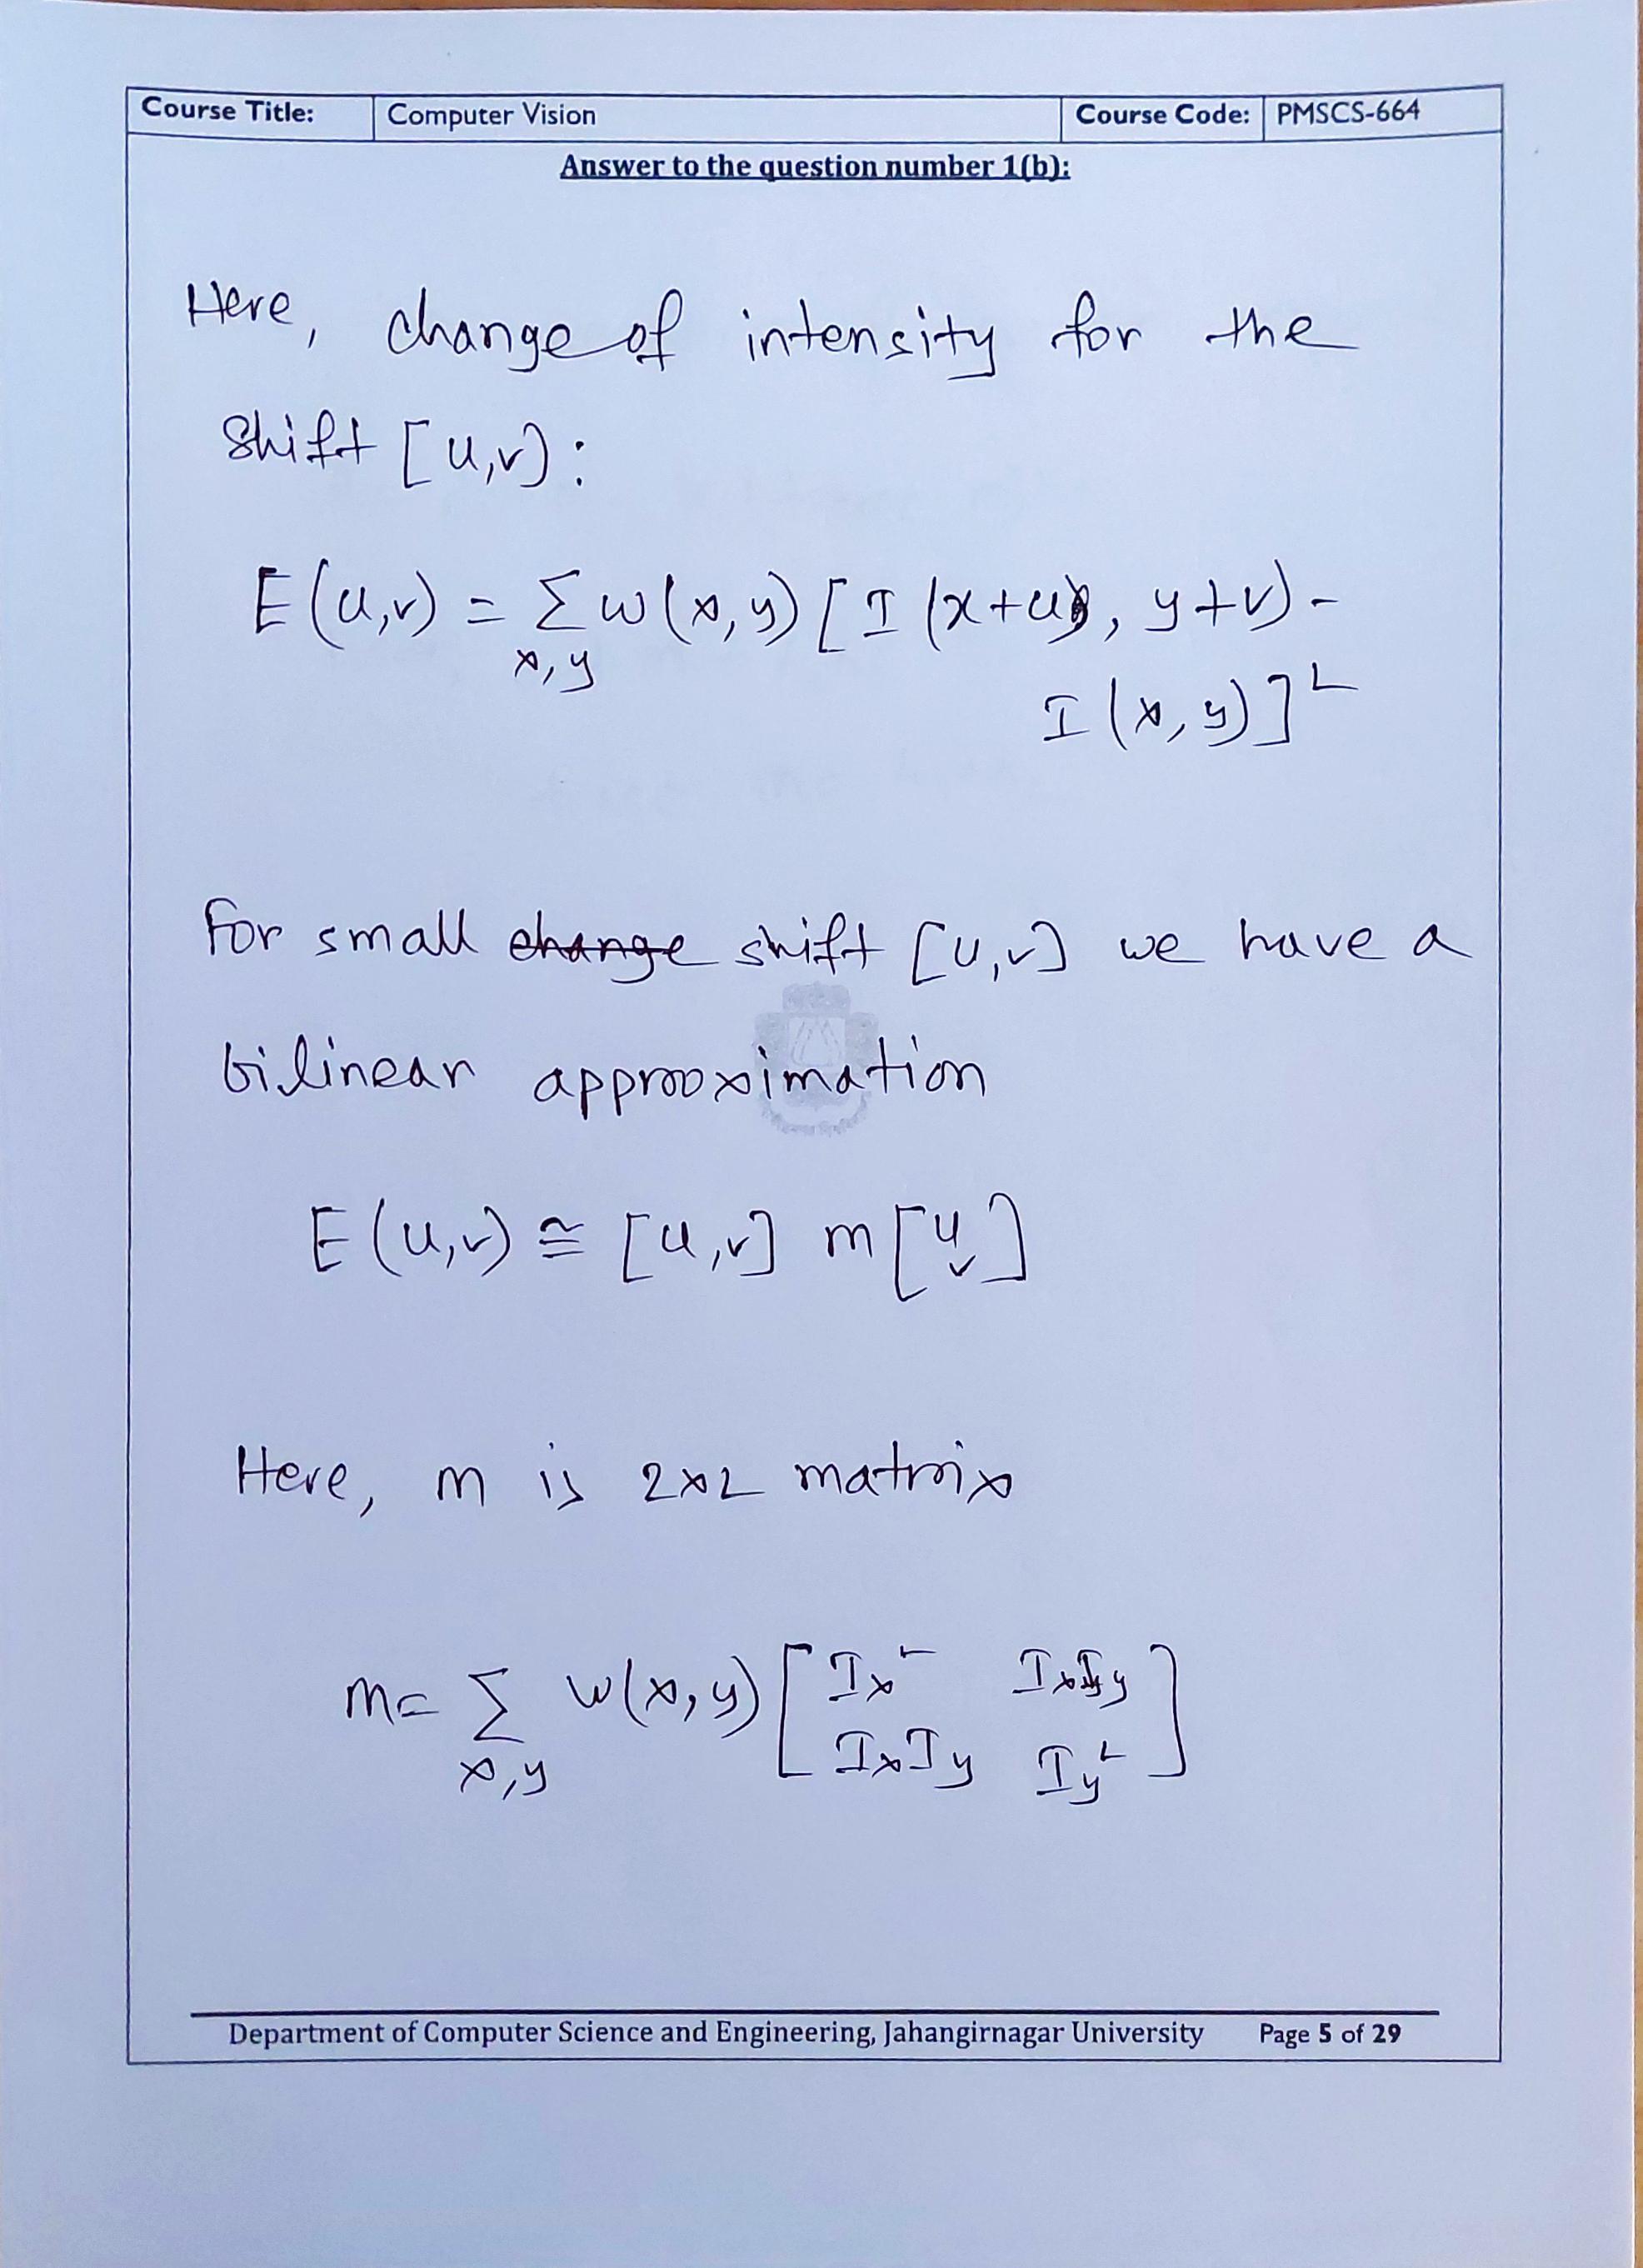 Course Title: Computer Vision Course Code: PMSCS-664
Answer to the question number 1(b):
Here, change of intensity for the
shift [u,v):
E(u,v) = Σ w(x,y) [I(x+u), y+v) -
x,y
I(x,y)]²
For small change shift [u,v] we have a
bilinear approximation
E(u,v) ≅ [u,v] m [u
v]
Here, m is 2x2 matrix
m = Σ w(x,y) [Ix² IxIy
x,y IxIy Iy²]
Department of Computer Science and Engineering, Jahangirnagar University Page 5 of 29